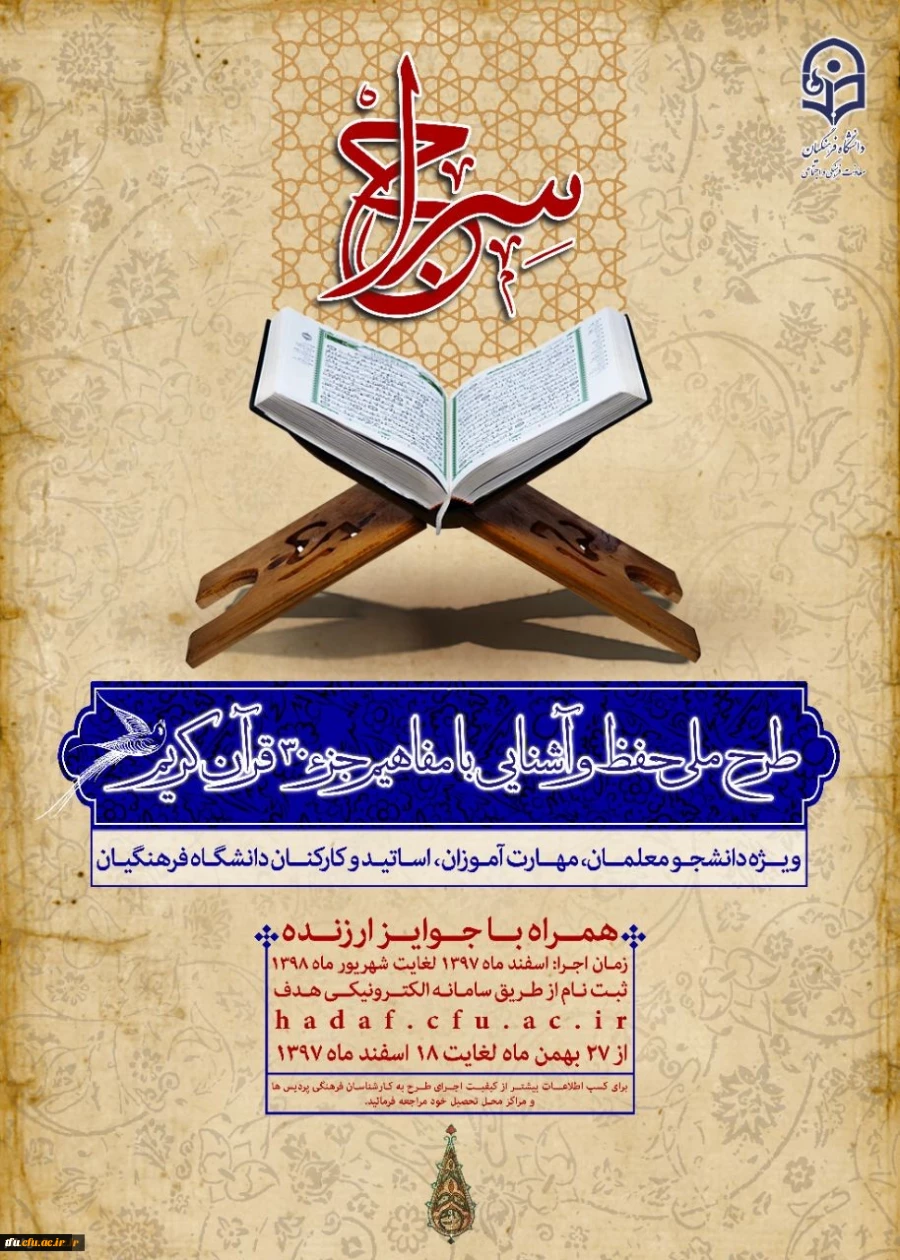 سراج
دانشگاه فرهنگیان
معاونت فرهنگی و اجتماعی
طرح ملی حفظ و آشنایی با مفاهیم جزء ۳۰ قرآن کریم
ویژه دانشجو معلمان، مهارت آموزان، اساتید و کارکنان دانشگاه فرهنگیان
همراه با جوایز ارزنده
زمان اجرا: اسفند ماه ۱۳۹۷ لغایت شهریور ماه ۱۳۹۸
ثبت نام از طریق سامانه الکترونیکی هدف
hadaf.cfu.ac.ir
از ۲۷ بهمن ماه لغایت ۱۸ اسفند ماه ۱۳۹۷
برای کسب اطلاعات بیشتر از کیفیت اجرای طرح به کارشناسان فرهنگی پردیس ها
و مراکز محل تحصیل خود مراجعه فرمائید.